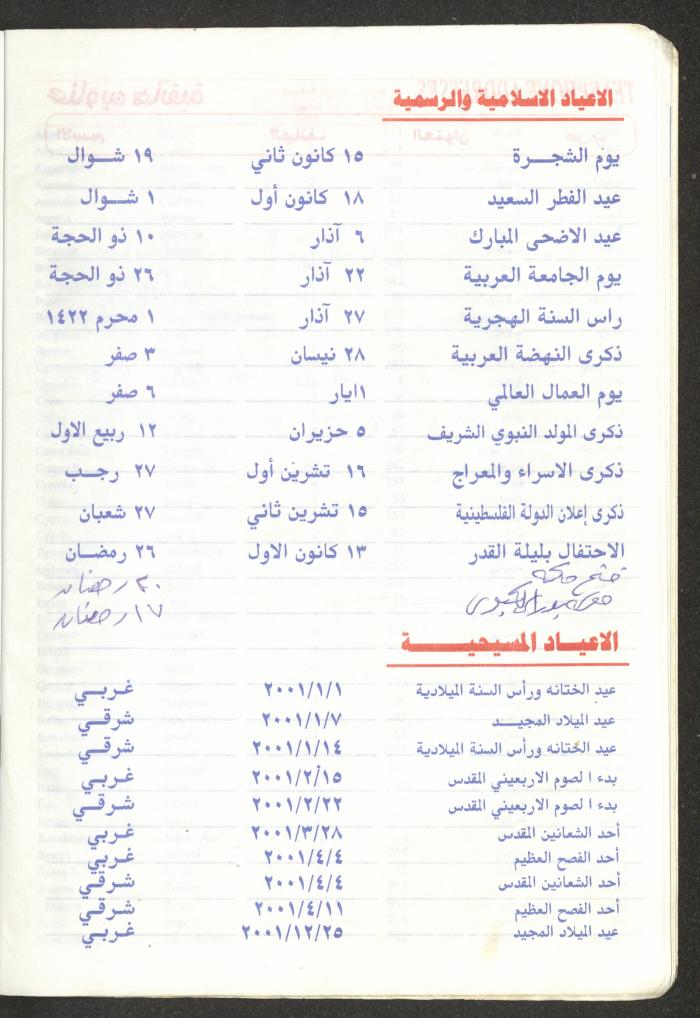 الاعياد الاسلامية والرسمية
يوم الشجـــرة ١٥ كانون ثاني ١٩ شــوال
عيد الفطر السعيد ١٨ كانون أول ١ شــوال
عيد الاضحى المبارك ٦ آذار ١٠ ذو الحجة
يوم الجامعة العربية ٢٢ آذار ٢٦ ذو الحجة
راس السنة الهجرية ٢٧ آذار ١ محرم ١٤٢٢
ذكرى النهضة العربية ٢٨ نيسان ٣ صفر
يوم العمال العالمي ١ايار ٦ صفر
ذكرى المولد النبوي الشريف ٥ حزيران ١٢ ربيع الاول
ذكرى الاسراء والمعراج ١٦ تشرين أول ٢٧ رجــب
ذكرى إعلان الدولة الفلسطينية ١٥ تشرين ثاني ٢٧ شعبان
الاحتفال بليلة القدر ١٣ كانون الاول ٢٦ رمضــان
فتح مكه ٢٠ رمضان
معركة بدر الكبرى ١٧ رمضان
الاعيــاد المسيحيـــــة
عيد الختانه ورأس السنة الميلادية ٢٠٠١/١/١ غــربــي
عيد الميلاد المجيــد ٢٠٠١/١/٧ شرقــي
عيد الختانه ورأس السنة الميلادية ٢٠٠١/١/١٤ شرقــي
بدء ا لصوم الاربعيني المقدس ٢٠٠١/٢/١٥ غــربي
بدء ا لصوم الاربعيني المقدس ٢٠٠١/٢/٢٢ شـرقــي
أحد الشعانين المقدس ٢٠٠١/٣/٢٨ غــربي
أحد الفصح العظيم ٢٠٠١/٤/٤ غــربي
أحد الشعانين المقدس ٢٠٠١/٤/٤ شرقــي
أحد الفصح العظيم ٢٠٠١/٤/١١ شــرقي
عيد الميلاد المجيد ٢٠٠١/١٢/٢٥ غــربــي